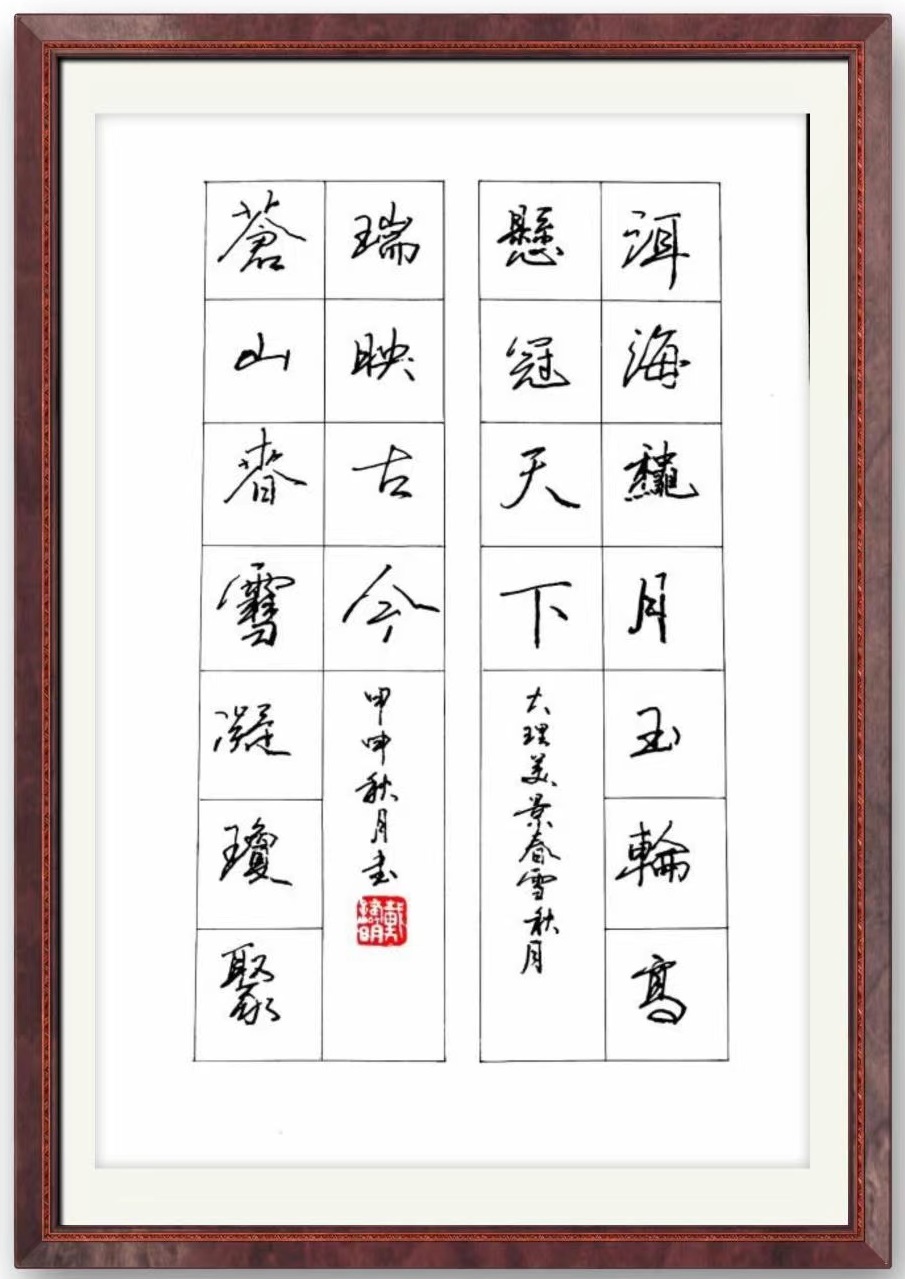 洱海龝月玉輪高
懸冠天下
大理美景春雪秋月
蒼山春雪凝瓊聚
瑞映古今
甲申秋月書